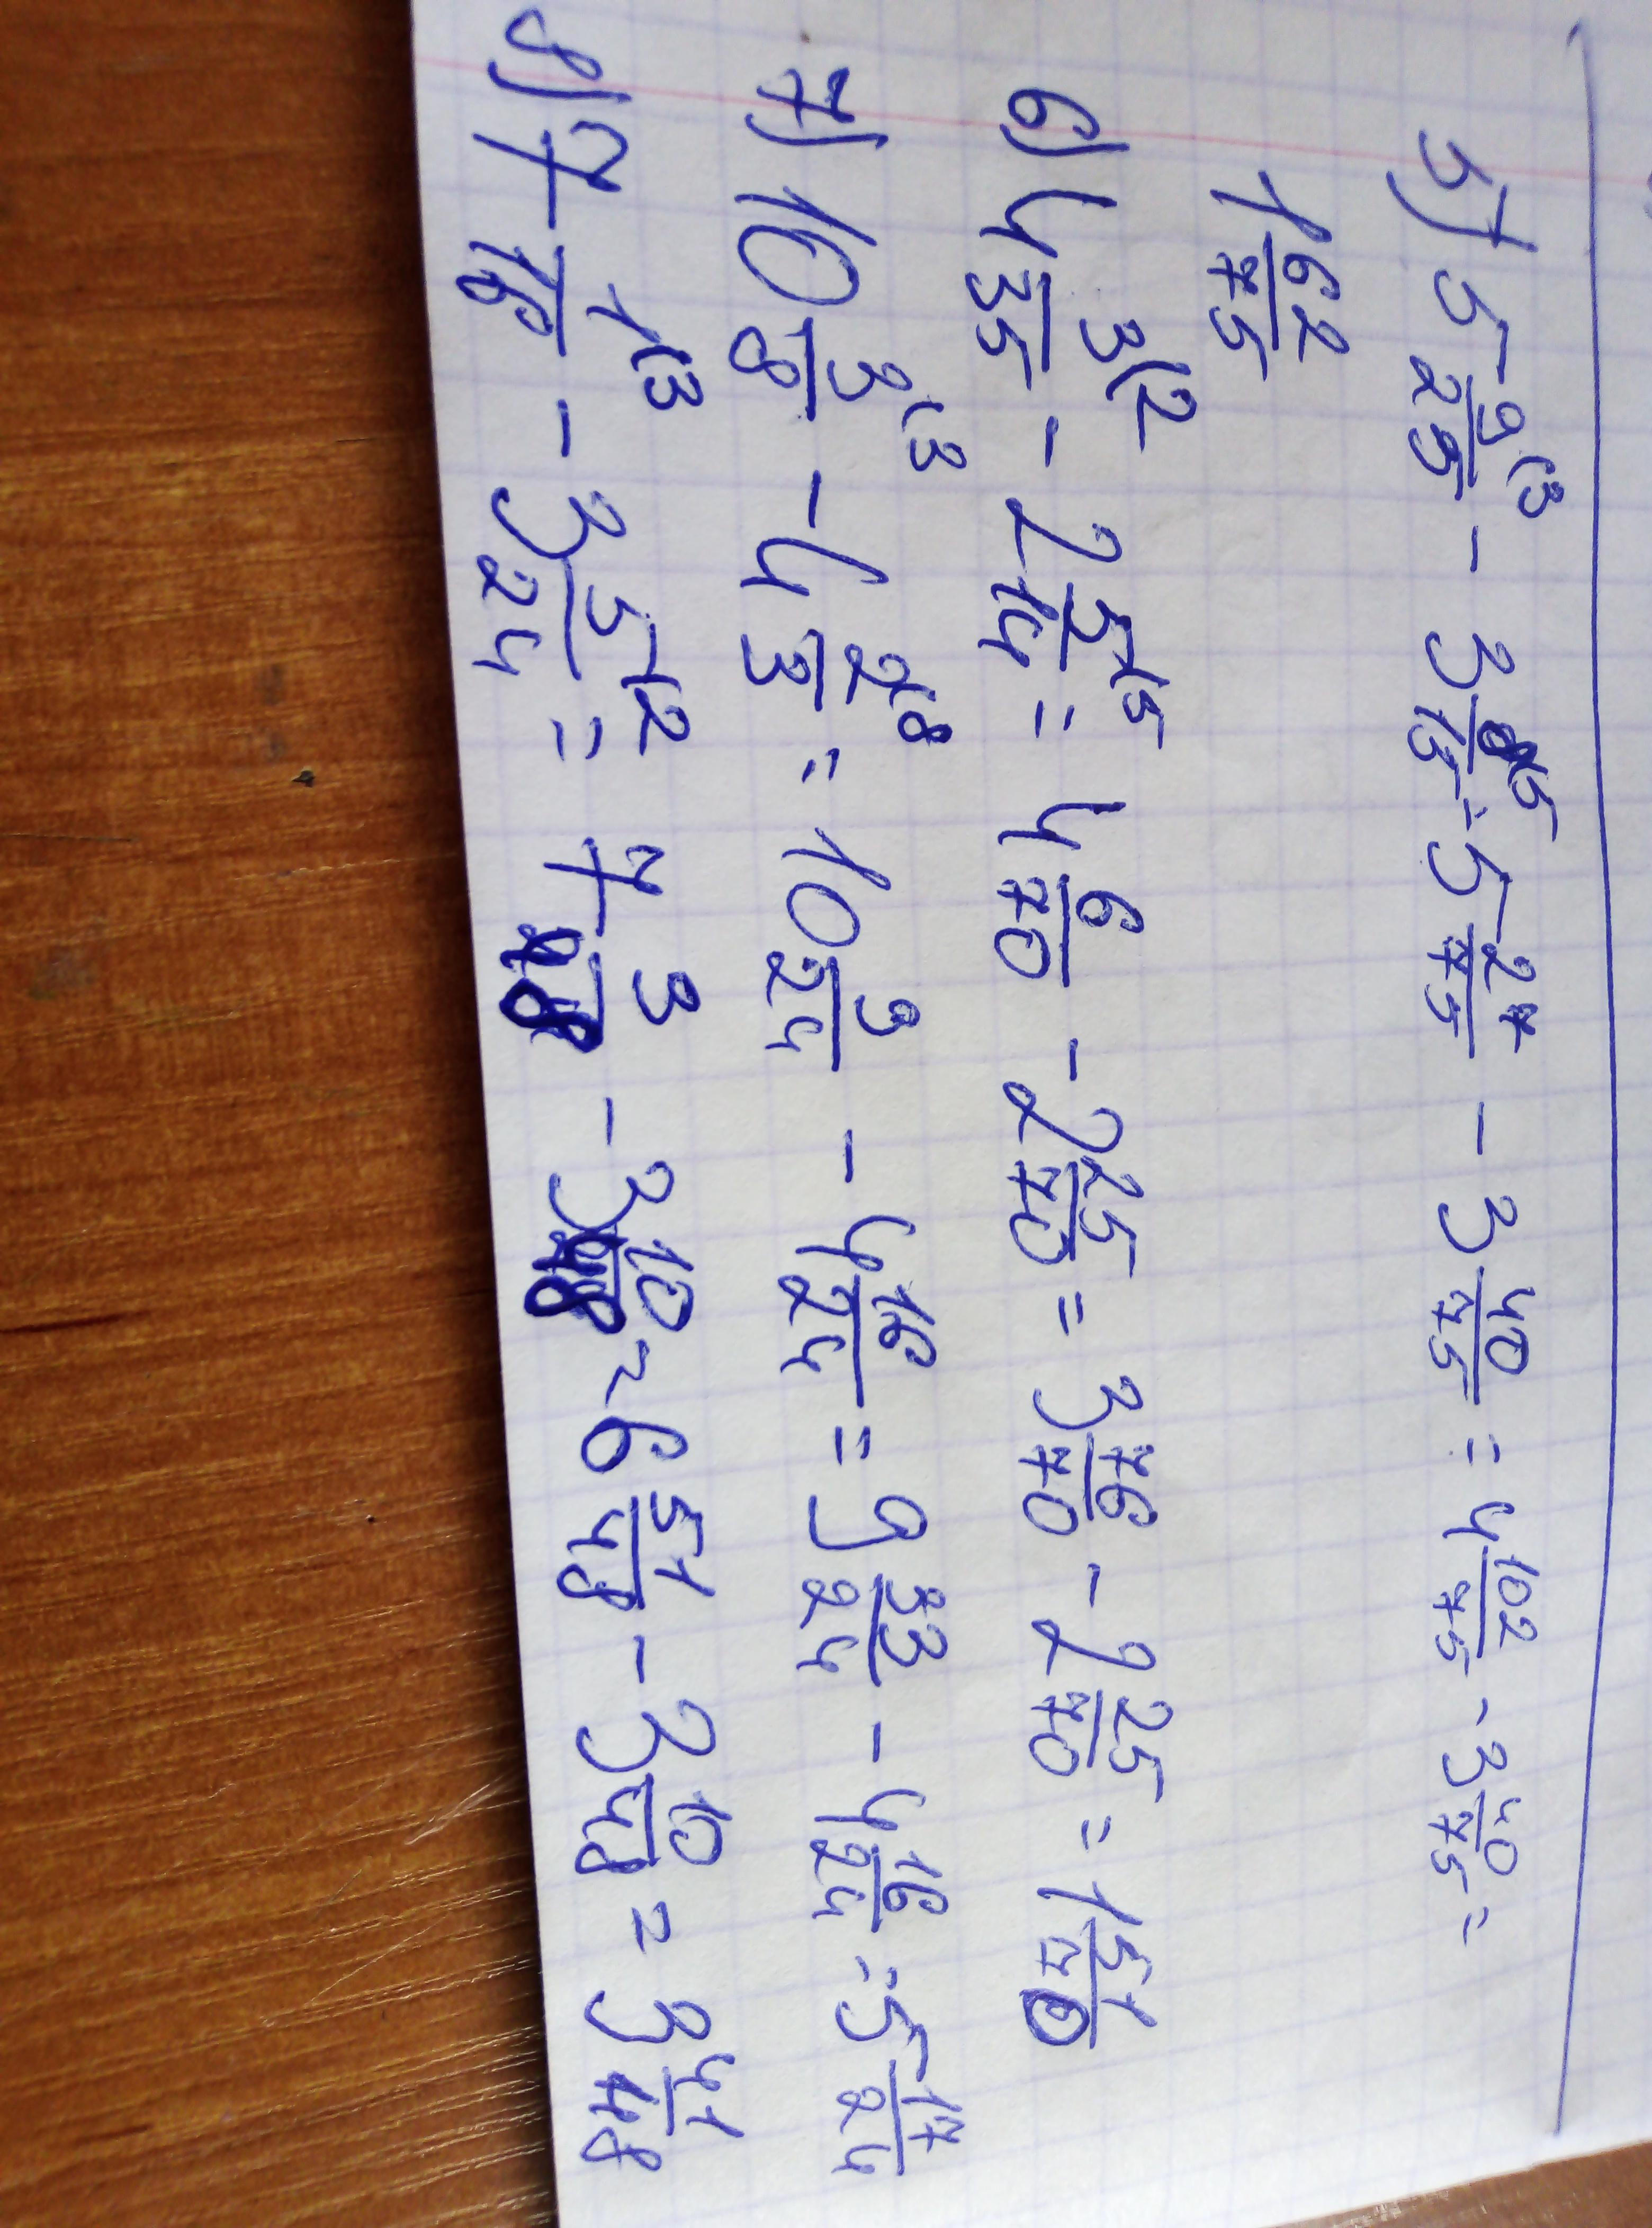 5) 5 9/25 (3 - 3 8/15 (5 = 5 27/75 - 3 40/75 = 4 102/75 - 3 40/75 =
1 62/75
6) 4 3/35 (2 - 2 5/14 (5 = 4 6/70 - 2 25/70 = 3 76/70 - 2 25/70 = 1 51/70
7) 10 3/8 (3 - 4 2/3 (8 = 10 9/24 - 4 16/24 = 9 33/24 - 4 16/24 = 5 17/24
8) 7 1/16 (3 - 3 5/24 (2 = 7 3/48 - 3 10/48 = 6 51/48 - 3 10/48 = 3 41/48